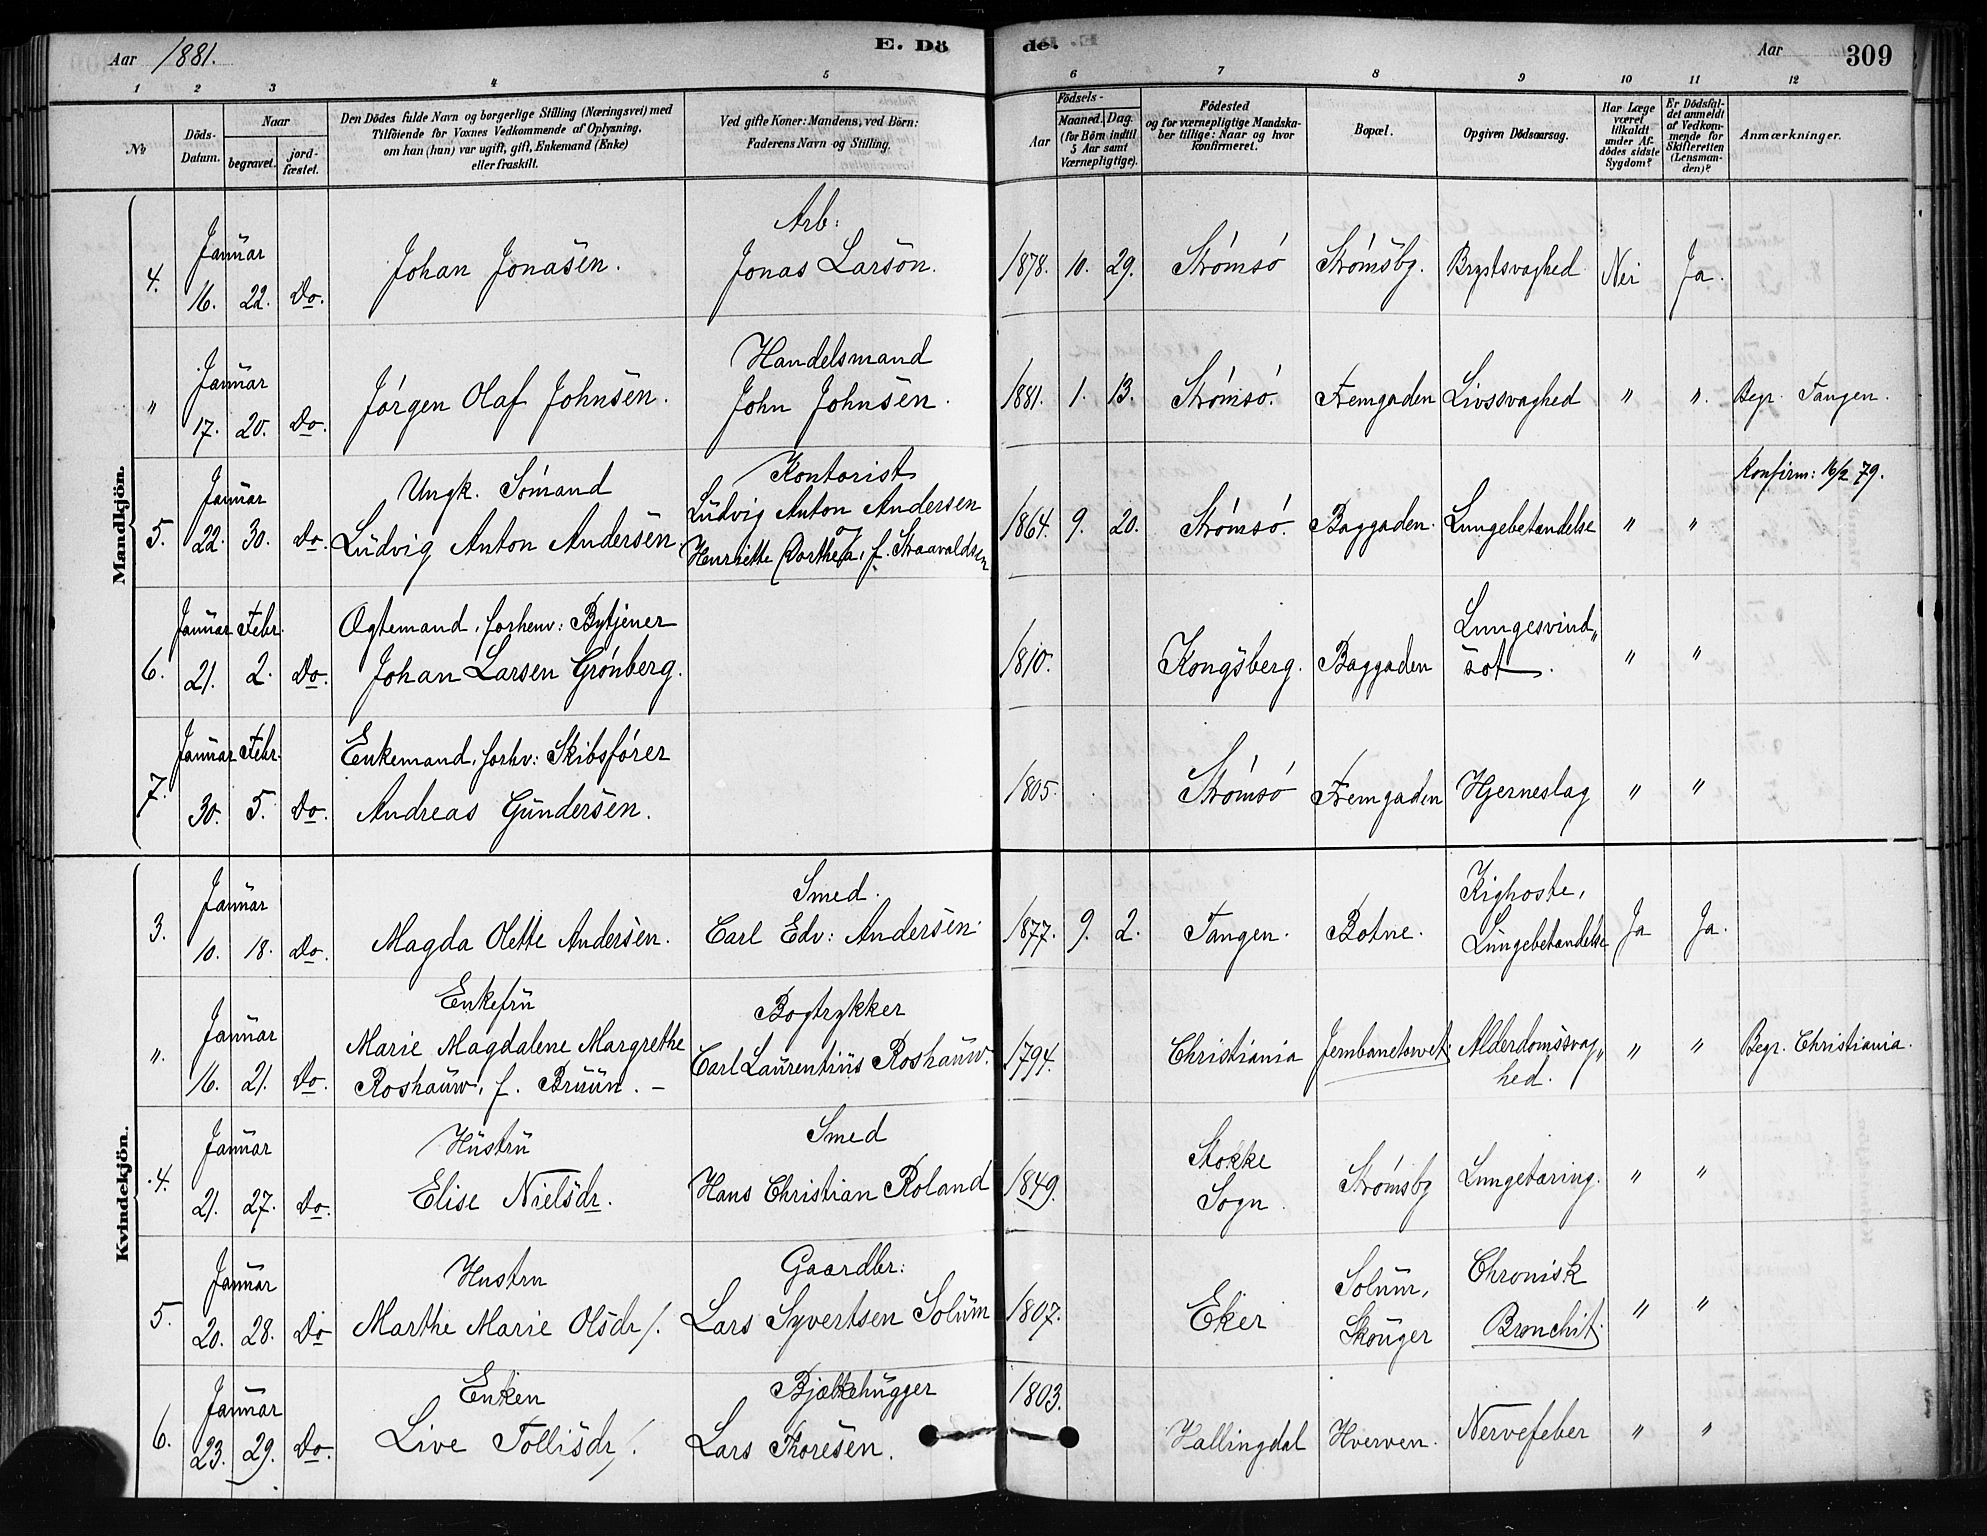 Aar 1881. E. Dö de. Aar 309
1 2 3 4 5 6 7 8 9 10 11 12
№
Döds-Datum.
Naar
begravet. jord-fæstet.
Den Dödes fulde Navn og borgerlige Stilling (Næringsvei) med
Tilföiende for Voxnes Vedkommende af Oplysning,
om han (hun) var ugift, gift, Enkemand (Enke)
eller fraskilt.
Ved gifte Koner: Mandens, ved Börn:
Faderens Navn og Stilling.
Födsels-
Aar Maaned. Dag.
(for Börn indtil
5 Aar samt
Værnepligtige).
Födested
og for værnepligtige Mandska-
ber tillige: Naar og hvor
konfirmeret.
Bopæl.
Opgiven Dödsaarsag.
Har Læge
været
tilkaldt
under Af-
dödes sidste
Sygdom?
Er Dödsfal-
det anmeldt
af Vedkom-
mende for
Skifteretten
(Lensman-
den)?
Anmærkninger.
Mandkjön.
Januar Arb:
4. 16. 22. Do. Johan Jonasen. Jonas Larson. 1878. 10. 29. Strømsø Strømsbg. Brystsvaghed Nei Ja.
Januar Handelsmand
" 17. 20. Do. Jörgen Olaf Johnsen. John Johnsen. 1881. 1. 13. Strømsø. Fremgaden Livssvaghed " ". Begr. Tangen.
Januar Ungk. Sömand Kontorist Konfirm: 16/2 79.
Ludvig Anton Andersen
5. 22. 30. Do. Ludvig Anton Andersen. Henriette Dorthea, f. Straavaldsen 1864. 9. 20. Strømsø. Baggaden. Lungebetændelse " "
Januar Febr. Ægtemand, forhenv: Bytjener Lungesvind„
6. 21. 2. Do. Johan Larsen Grønberg. 1810. Kongsberg. Baggaden sot. " "
Januar Febr. Enkemand, forhv: Skibsfører
7. 30. 5. Do. Andreas Gundersen. 1805. Strømsø Fremgaden Hjerneslag " "
Kvindekjön.
Januar Smed. Kighoste,
3. 10. 18. Do. Magda Olette Andersen. Carl Edv: Andersen. 1877. 9. 2. Tangen. Botne. Lungebetændelse Ja Ja.
Januar Enkefru Bogtrykker
Marie Magdalene Margrethe Carl Laurentius Roshauw. 1794. Christiania Jernbanetorvet. Alderdomssvag„ " " Begr. Christiania.
". 16. 21. Do. Roshauw, f. Bruun. – hed.
Januar Hustru Smed Stokke
4. 21. 27. Do. Elise Nielsdr. Hans Christian Roland 1849. Sogn Strømsbg Lungetæring. " "
Januar Hustru Gaardbr: Solum, Chronisk
5. 20. 28. Do Marthe Marie Olsdr/. Lars Syvertsen Solum 1807. Eker Skouger Bronchit. " "
Januar Enken Bjælkehugger 1803.
6. 23. 29. Do. Live Tollisdr/. Lars Thoresen. Hallingdal Hverven. Nervefeber " "